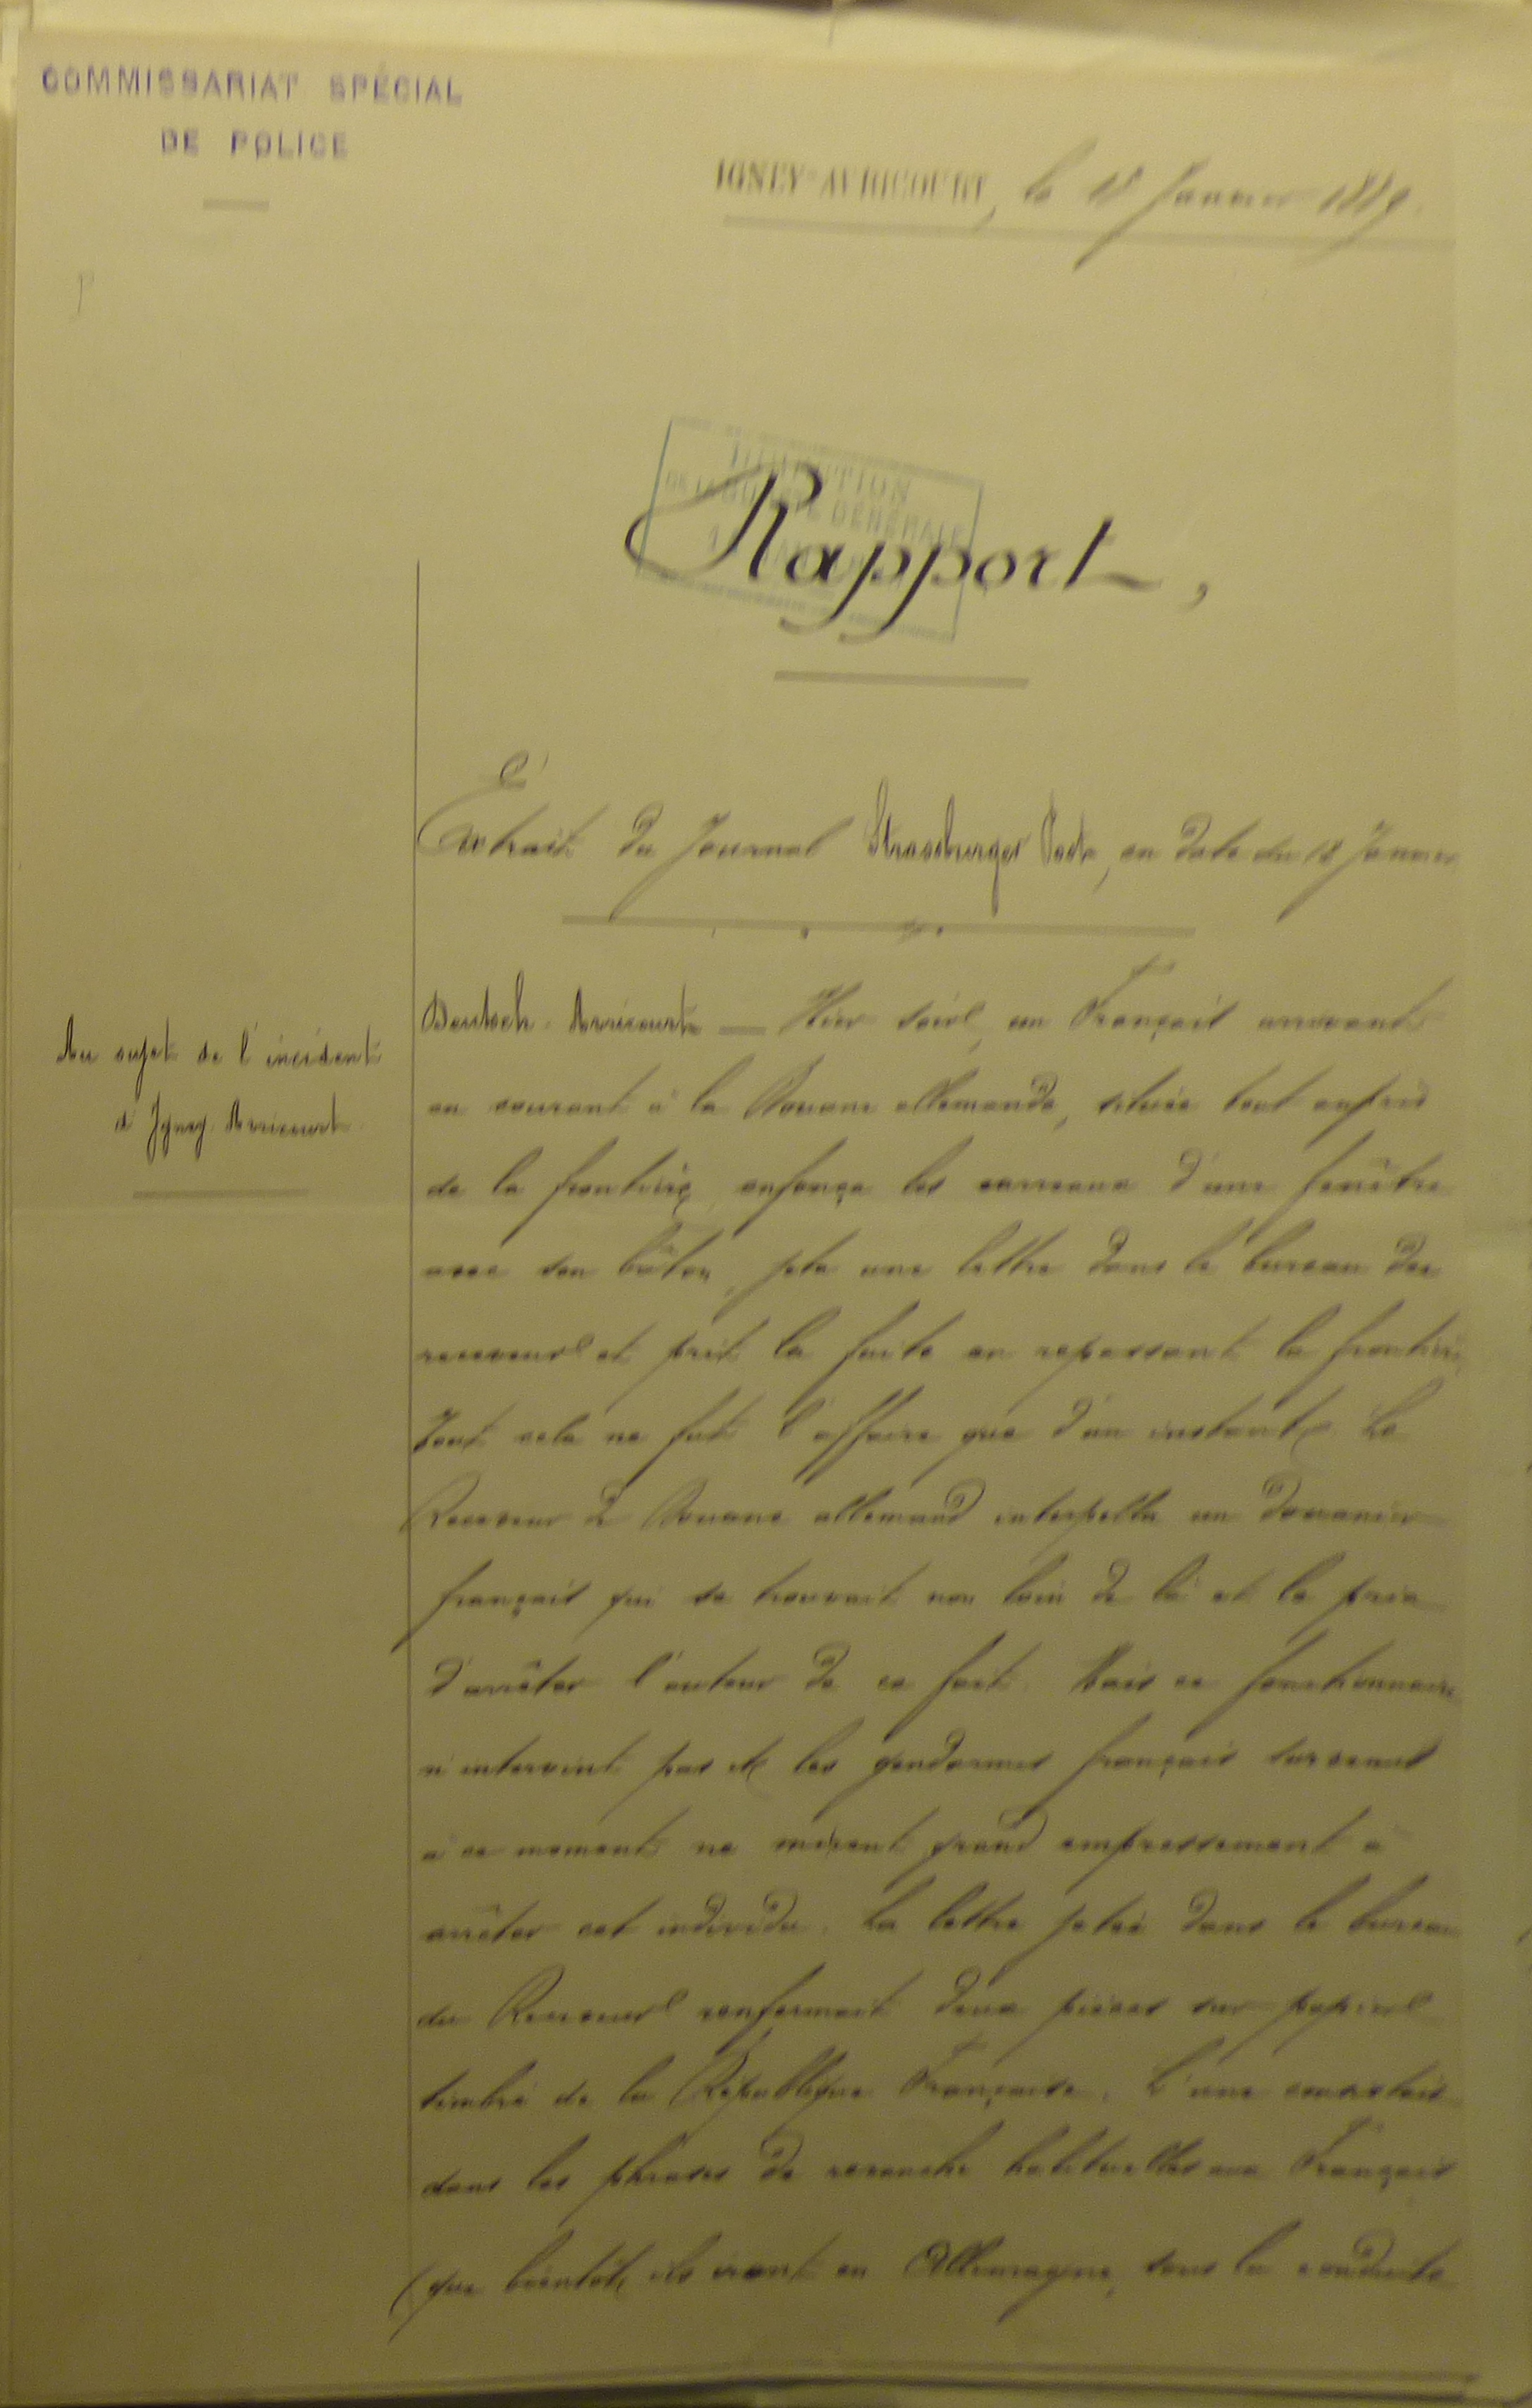 COMMISSARIAT SPÉCIAL
DE POLICE
IGNEY-AVRICOURT, le 18 Janvier 1889.
DIRECTION
DE LA SURETÉ GÉNÉRALE
Rapport,
Extrait du Journal Strassburger Post, en date du 18 Janvier
Au sujet de l'incident
d'Igney-Avricourt
Deutsch-Avricourt — Hier soir, un Français arrivant
en courant à la Douane allemande, située tout auprès
de la frontière, enfonça les carreaux d'une fenêtre
avec son bâton, jeta une lettre dans le bureau du
receveur et prit la fuite en repassant la frontière.
Tout cela ne fut l'affaire que d'un instant. Le
Receveur de Douane allemand interpella un douanier
français qui se trouvait non loin de là et le pria
d'arrêter l'auteur de ce fait. Mais ce fonctionnaire
n'intervint pas et les gendarmes français survenus
à ce moment ne mirent grand empressement à
arrêter cet individu. La lettre jetée dans le bureau
du Receveur renfermait deux pièces sur papier
timbré de la République Française. L'une consistait
dans les phrases de revanche habituelles aux Français
(que bientôt ils iront en Allemagne, sous la conduite